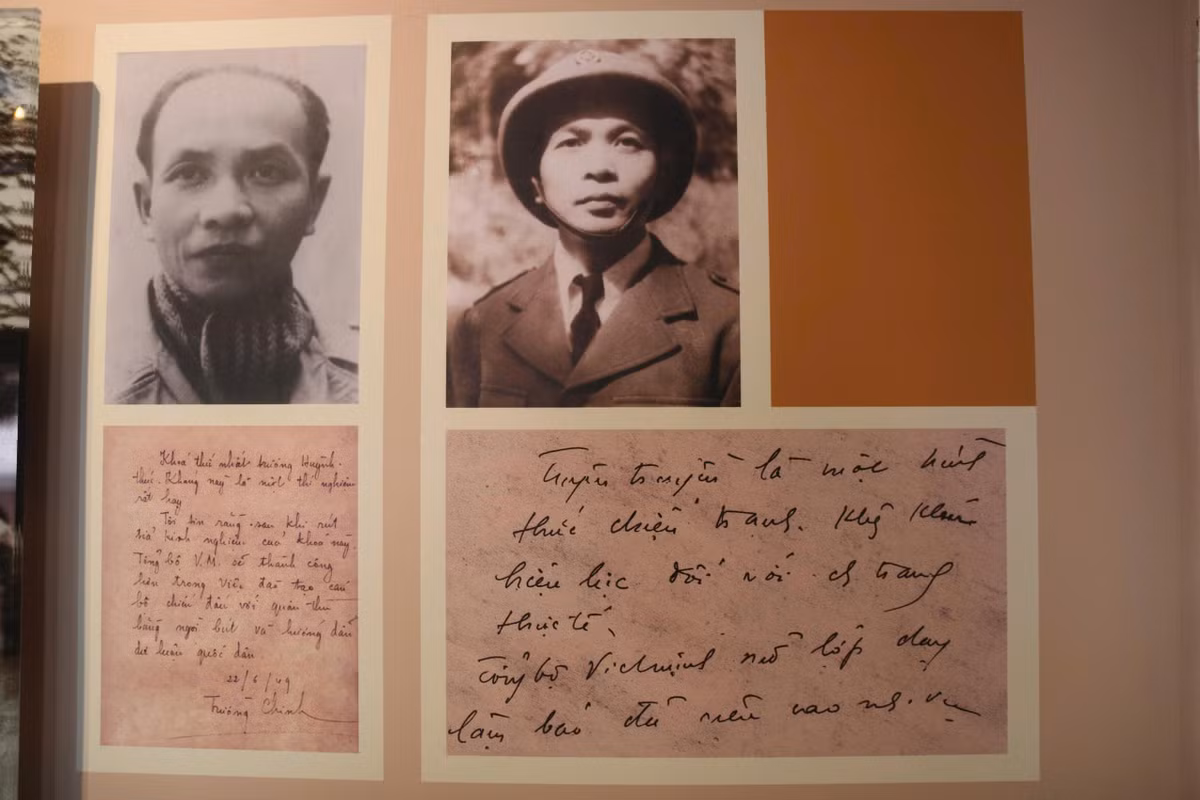 Khoá thứ nhất trường Huỳnh-
thúc-Kháng này là một thí nghiệm
rất hay
Tôi tin rằng sau khi rút
kinh nghiệm của khoá này,
Tổng bộ V.M. sẽ thành công
hơn trong việc đào tạo cán
bộ chiến đấu với quân thù
bằng ngòi bút và hướng dẫn
dư luận quốc dân
22/6/49
Trường Chinh
Tuyên truyền là một hình
thức chiến tranh.
hiệu lực đối với ch trang
thực tế
Tổng bộ Vietminh mở lớp dạy
làm báo đã nêu cao